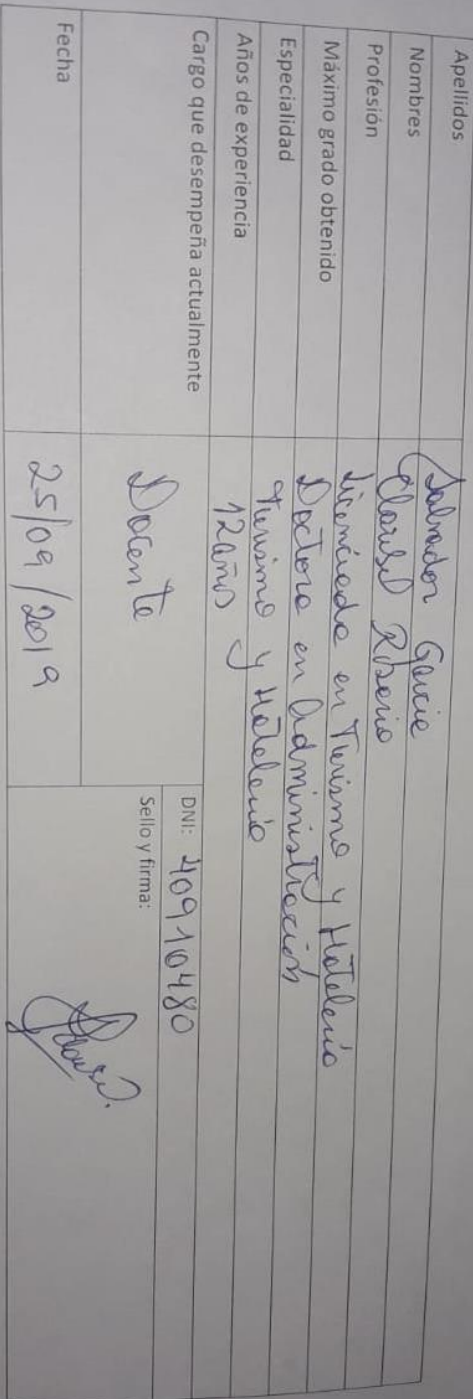 Apellidos Salvador Garcia
Nombres Claribel Rosario
Profesión Licenciada en Turismo y Hotelería
Máximo grado obtenido Doctora en Administración
Especialidad Turismo y Hotelería
Años de experiencia 12 años
Cargo que desempeña actualmente Docente
DNI: 40910480
Sello y firma:
Fecha 25/09/2019